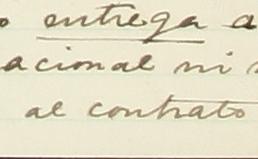 entrega a
acional ni
al contrato